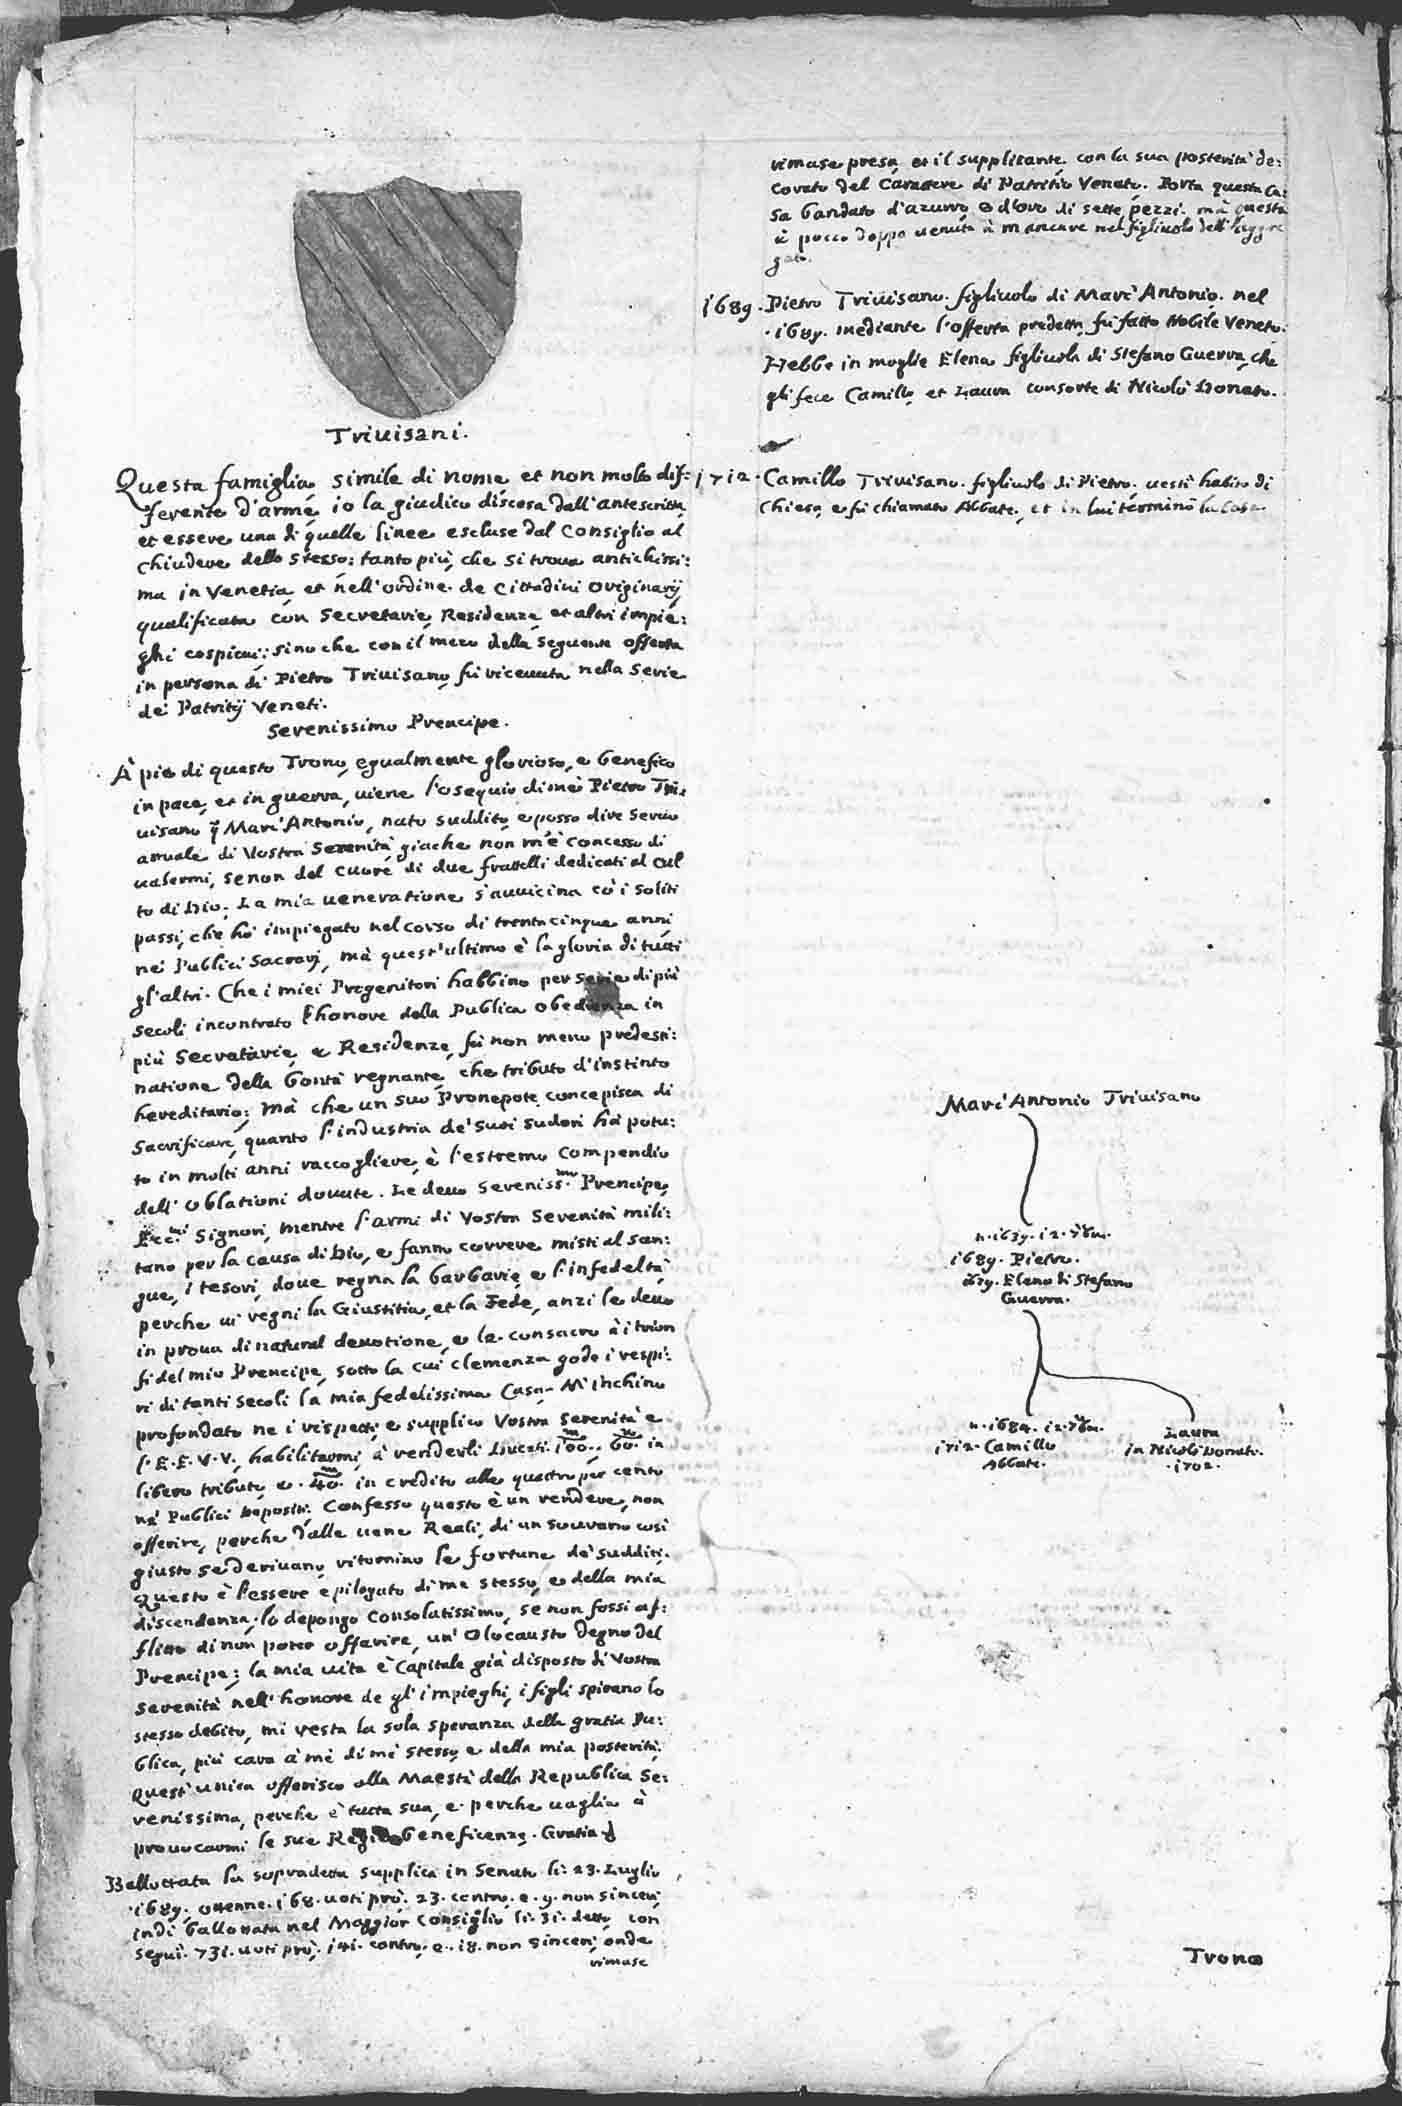 Triuisani.
Questa famiglia simile di nome et non molto dif:
ferente d'arme, io la giudico discesa dall'antescritta,
et essere una di quelle linee escluse dal Consiglio al
chiudere dello stesso: tanto più, che si troua antichissi:
ma in Venetia, et nell'ordine de Cittadini originarij
qualificata con Secretarie, Residenze, et altri impie:
ghi cospicui: sino che con il mezo della seguente offerta
in persona di Pietro Triuisano, fù riceuuta nella serie
de' Patritij Veneti.
Serenissimo Prencipe.
À pie di questo Trono, egualmente glorioso, e benefico
in pace, et in guerra, uiene l'osequio di mè Pietro Tri:
uisano q Marc'Antonio, nato suddito, e posso dire seruo
attuale di Vostra Serenità, giache non m'è concesso di
ualermi, se non del cuore di due fratelli dedicati al cul
to di Dio. La mia ueneratione s'auuicina co' i soliti
passi, che hò impiegato nel corso di trentacinque anni
ne' Publici Sacrarij, mà quest'ultimo è la gloria di tutti
gl'altri. Che i miei Progenitori habbino per serie di più
secoli incontrato l'honore della Publica obedienza in
più Secretarie, e Residenze, fù non meno predesti:
natione della bontà regnante, che tributo d'instinto
hereditario; Mà che un suo Pronepote concepisca di
sacrificare, quanto l'industria de' suoi sudori hà potu:
to in molti anni raccogliere, è l'estremo compendio
dell'oblationi douute. Le deuo Sereniss.mo Prencipe,
Ecc.mi Signori, mentre l'armi di Vostra Serenità mili:
tano per la causa di Dio, e fanno correre misti al san:
gue, i tesori, doue regna la barbarie, e l'infedeltà
perche ui regni la Giustitia, et la Fede, anzi le deuo
in proua di natural deuotione, e le consacro à i trion
fi del mio Prencipe, sotto la cui clemenza gode i respi:
ri di tanti secoli la mia fedelissima Casa. M'inchino
profondato ne i rispetti, e supplico Vostra Serenità e
l'E.E.V.V., habilitarmi, à renderli Ducati. 100.m, 60.m in
libero tributo, e. 40.m in credito alle quattro per cento
nè Publici Depositi: Confesso questo è un rendere, non
offerire, perche dalle uene Reali, di un souurano così
giusto se deriuano, ritornino le fortune de' sudditi.
Questo è l'essere epilogato di me stesso, e della mia
discendenza. lo depongo consolatissimo, se non fossi af:
flitto di non poter offerire, un'Olocausto degno del
Prencipe; la mia uita è Capitale già disposto di Vostra
Serenità nell'honore de gl'impieghi, i figli spirano lo
stesso debito, mi resta la sola speranza della gratia Pu:
blica, più cara à mè di mè stesso, e della mia posterità.
Quest'unica offerisco alla Maestà della Republica Se:
renissima, perche è tutta sua, e perche uaglia à
prouocarmi le sue Regie beneficenze. Gratia
Ballottata la sopradetta supplica in Senato li: 23. Luglio
1689. ottenne. 168. uoti prò. 23. contro, e. 9. non sinceri,
indi ballottata nel Maggior Consiglio li. 31. detto, con
seguì. 731. uoti prò. 141. contro, e. 18. non sinceri; onde
rimase
rimase presa, et il supplicante con la sua posterità de:
corato del Carattere di Patritio Veneto. Porta questa Ca:
sa bandato d'azurro, e d'oro di sette pezzi. mà questa
è pocco doppo uenuta à mancare nel figliuolo dell'Aggre
gato.
1689. Pietro Triuisano. figliuolo di Marc'Antonio. nel
.1689. mediante l'offerta predetta, fù fatto Nobile Veneto.
Hebbe in moglie Elena figliuola di Stefano Guerra, che
gli fece Camillo, et Laura consorte di Nicolò Donato.
1712. Camillo Triuisano. figliuolo di Pietro. uestì habito di
Chiesa, e fù chiamato Abbate, et in lui terminò la Casa.
Marc'Antonio Triuisano
n. 1639. 12. 7bre.
1689. Pietro.
1679. Elena di Stefano
Guerra.
n. 1684. 12. 7bre.
1712. Camillo
Abbate.
Laura
in Nicolò Donato.
.1702.
Trono